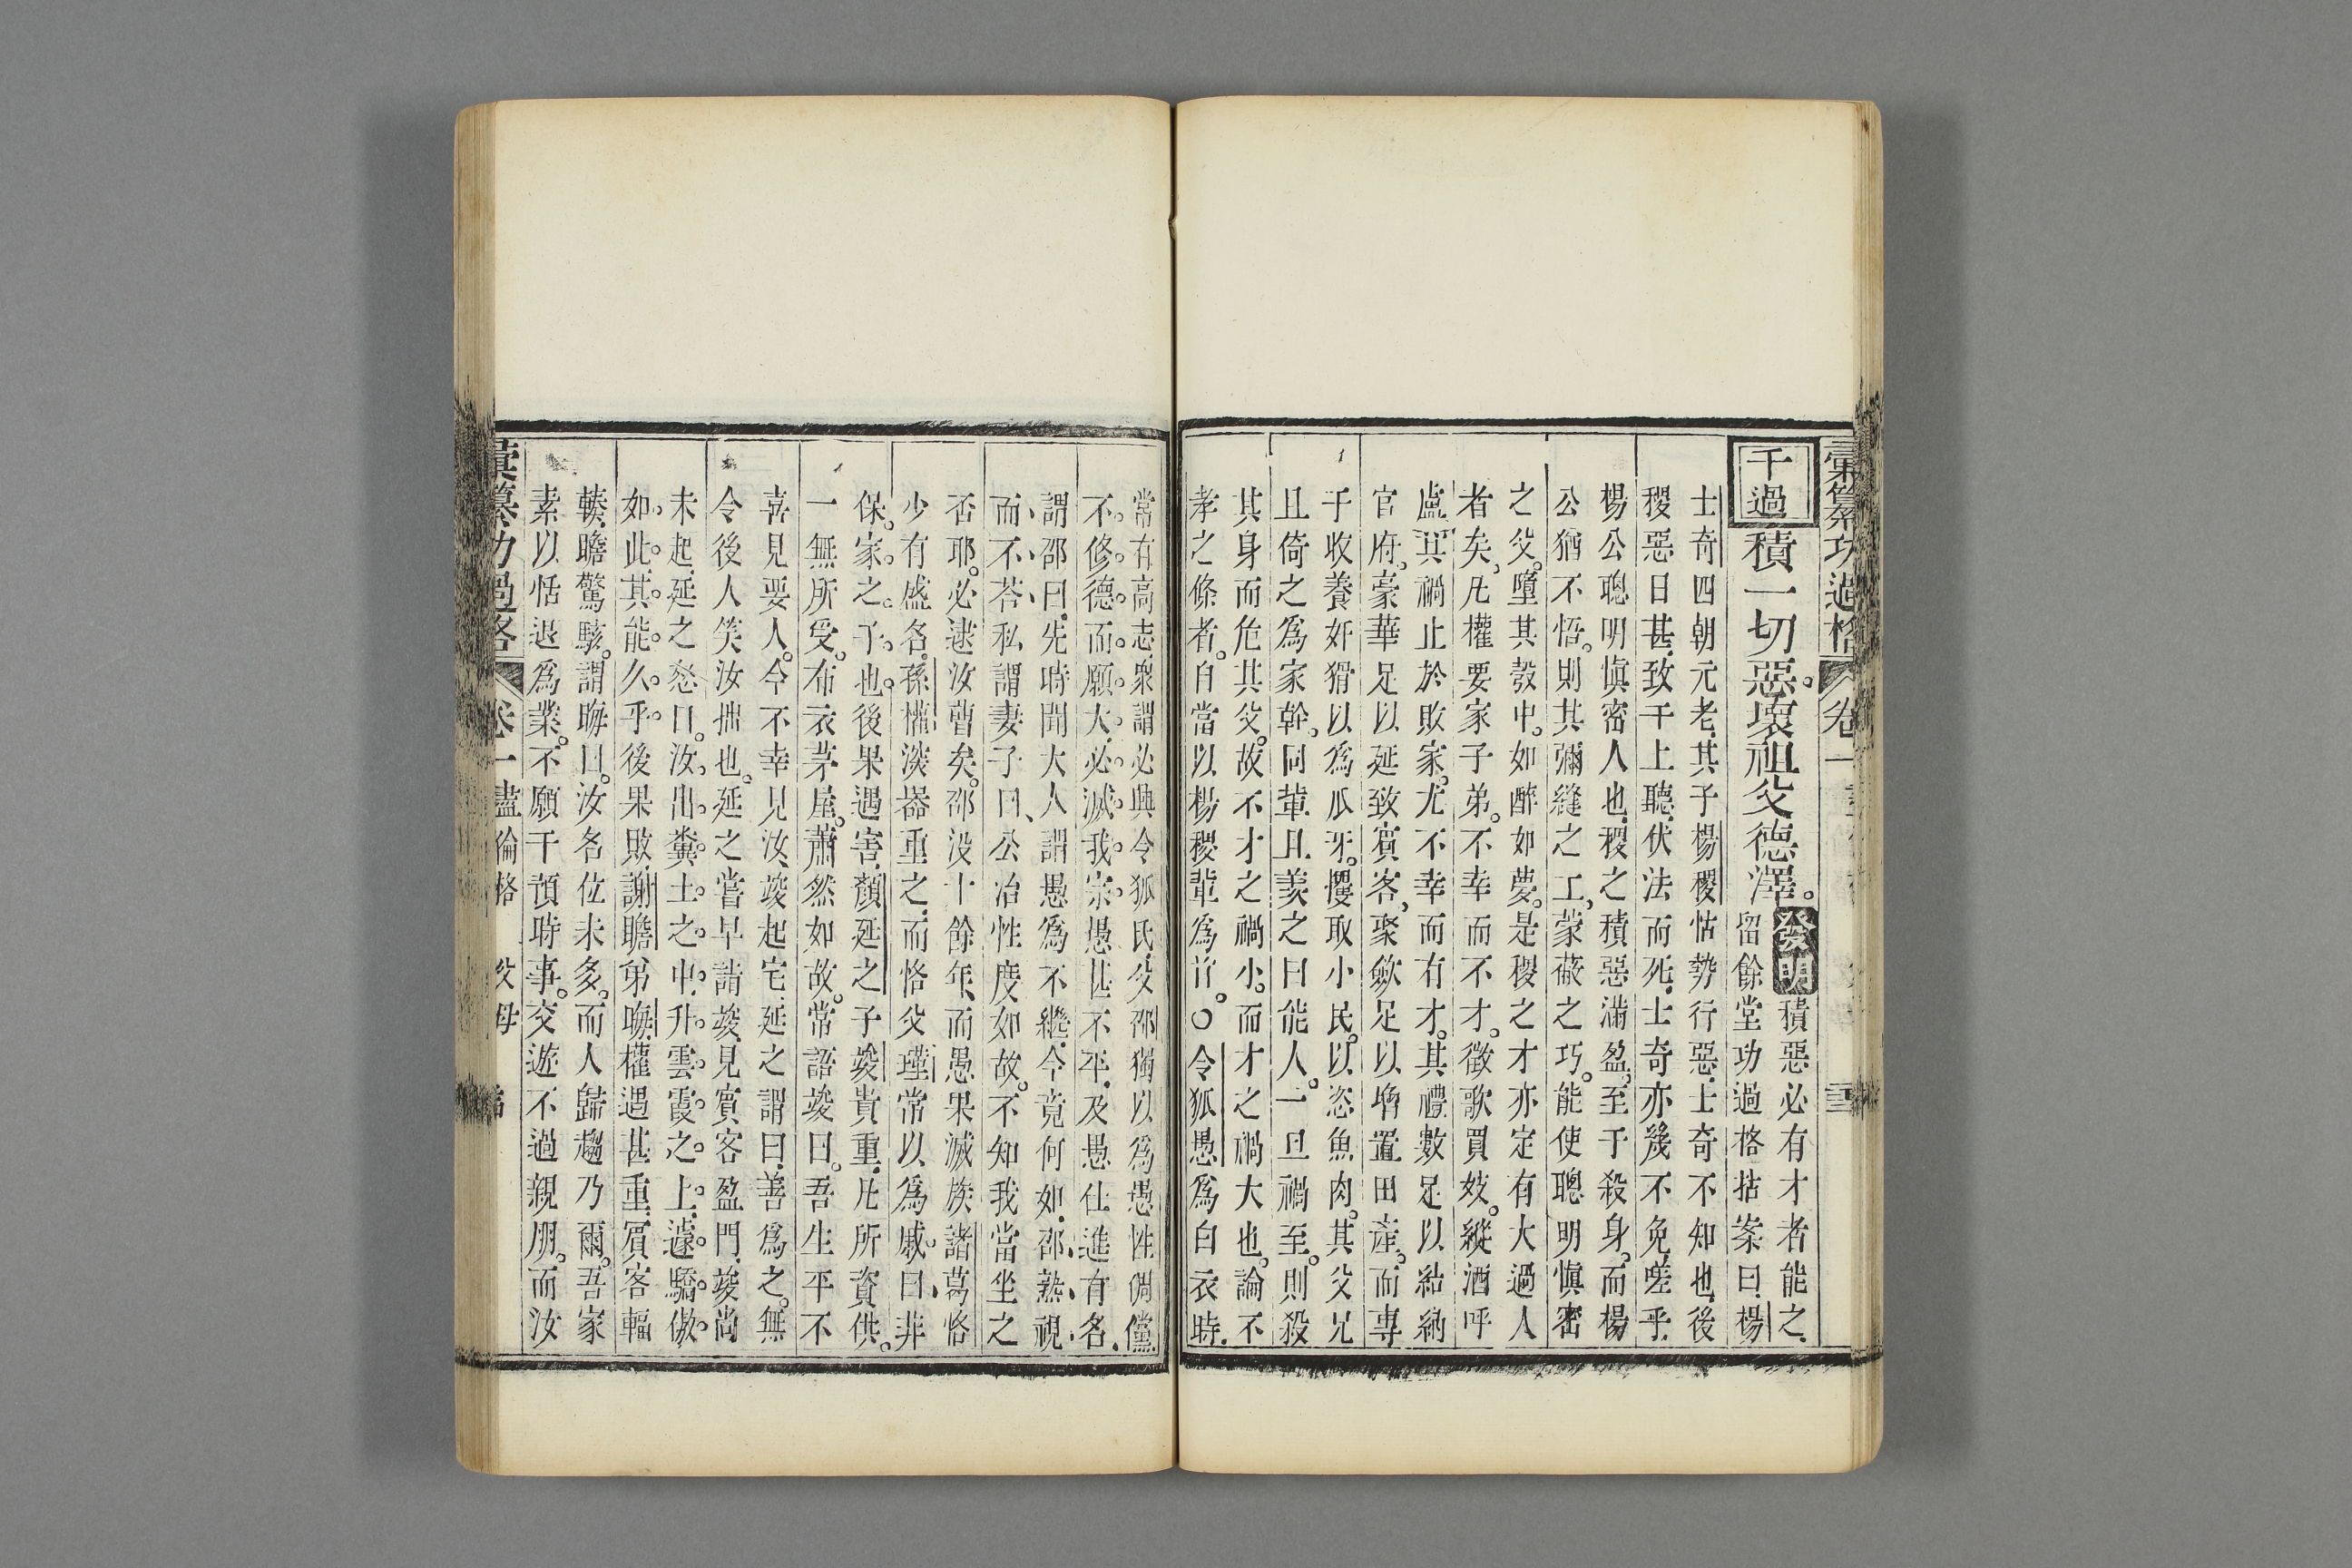 彙纂功過格 卷一
千過 積一切惡。壞祖父德澤。發明 積惡必有才者能之。
留餘堂功過格拈案曰。楊
士奇四朝元老。其子楊稷怙勢行惡。士奇不知也。後
稷惡日甚。致干上聽。伏法而死。士奇亦幾不免。嗟乎。
楊公聰明慎密人也。稷之積惡滿盈。至于殺身。而楊
公猶不悟。則其彌縫之工。蒙蔽之巧。能使聰明慎密
之父。墮其彀中。如醉如夢。是稷之才亦定有大過人
者矣。凡權要家子弟。不幸而不才。徵歌買妓。縱酒呼
盧。其禍止於敗家。尤不幸而有才。其禮數足以結納
官府。豪華足以延致賓客。聚歛足以增置田產。而專
于收養奸猾以為瓜牙。攫取小民。以恣魚肉。其父兄
且倚之為家幹。同輩且羨之曰能人。一旦禍至。則殺
其身而危其父。故不才之禍小。而才之禍大也。論不
孝之條者。自當以楊稷輩為首。○令狐愚為白衣時。
常有高志衆謂必興令狐氏。父邵獨以為愚性倜儻
不修德而願大。必滅我宗。愚甚不平。及愚仕進有名。
謂邵曰。先時聞大人謂愚為不繼。今竟何如。邵熟視
而不荅。私謂妻子曰。公治性度如故。不知我當坐之
否耶。必逮汝曹矣。邵没十餘年。而愚果滅族。諸葛恪
少有盛名。孫權淡器重之。而恪父瑾常以為戚。曰。非
保家之子也。後果遇害。顏延之子竣貴重。凡所資供。
一無所受。布衣茅屋。蕭然如故。常語竣曰。吾生平不
喜見要人。今不幸見汝。竣起宅。延之謂曰。善為之。無
令後人笑汝拙也。延之嘗早詣竣。見賓客盈門。竣尚
未起。延之怒曰。汝出糞土之中。升雲霞之上。遽驕傲
如此。其能久乎。後果敗。謝瞻弟晦。權遇甚重。賓客輻
輳。瞻驚駭。謂晦曰。汝名位未多。而人歸趨乃爾。吾家
素以恬退為業。不願干預時事。交遊不過親朋。而汝
彙纂功過格 卷一 盡倫格 父母